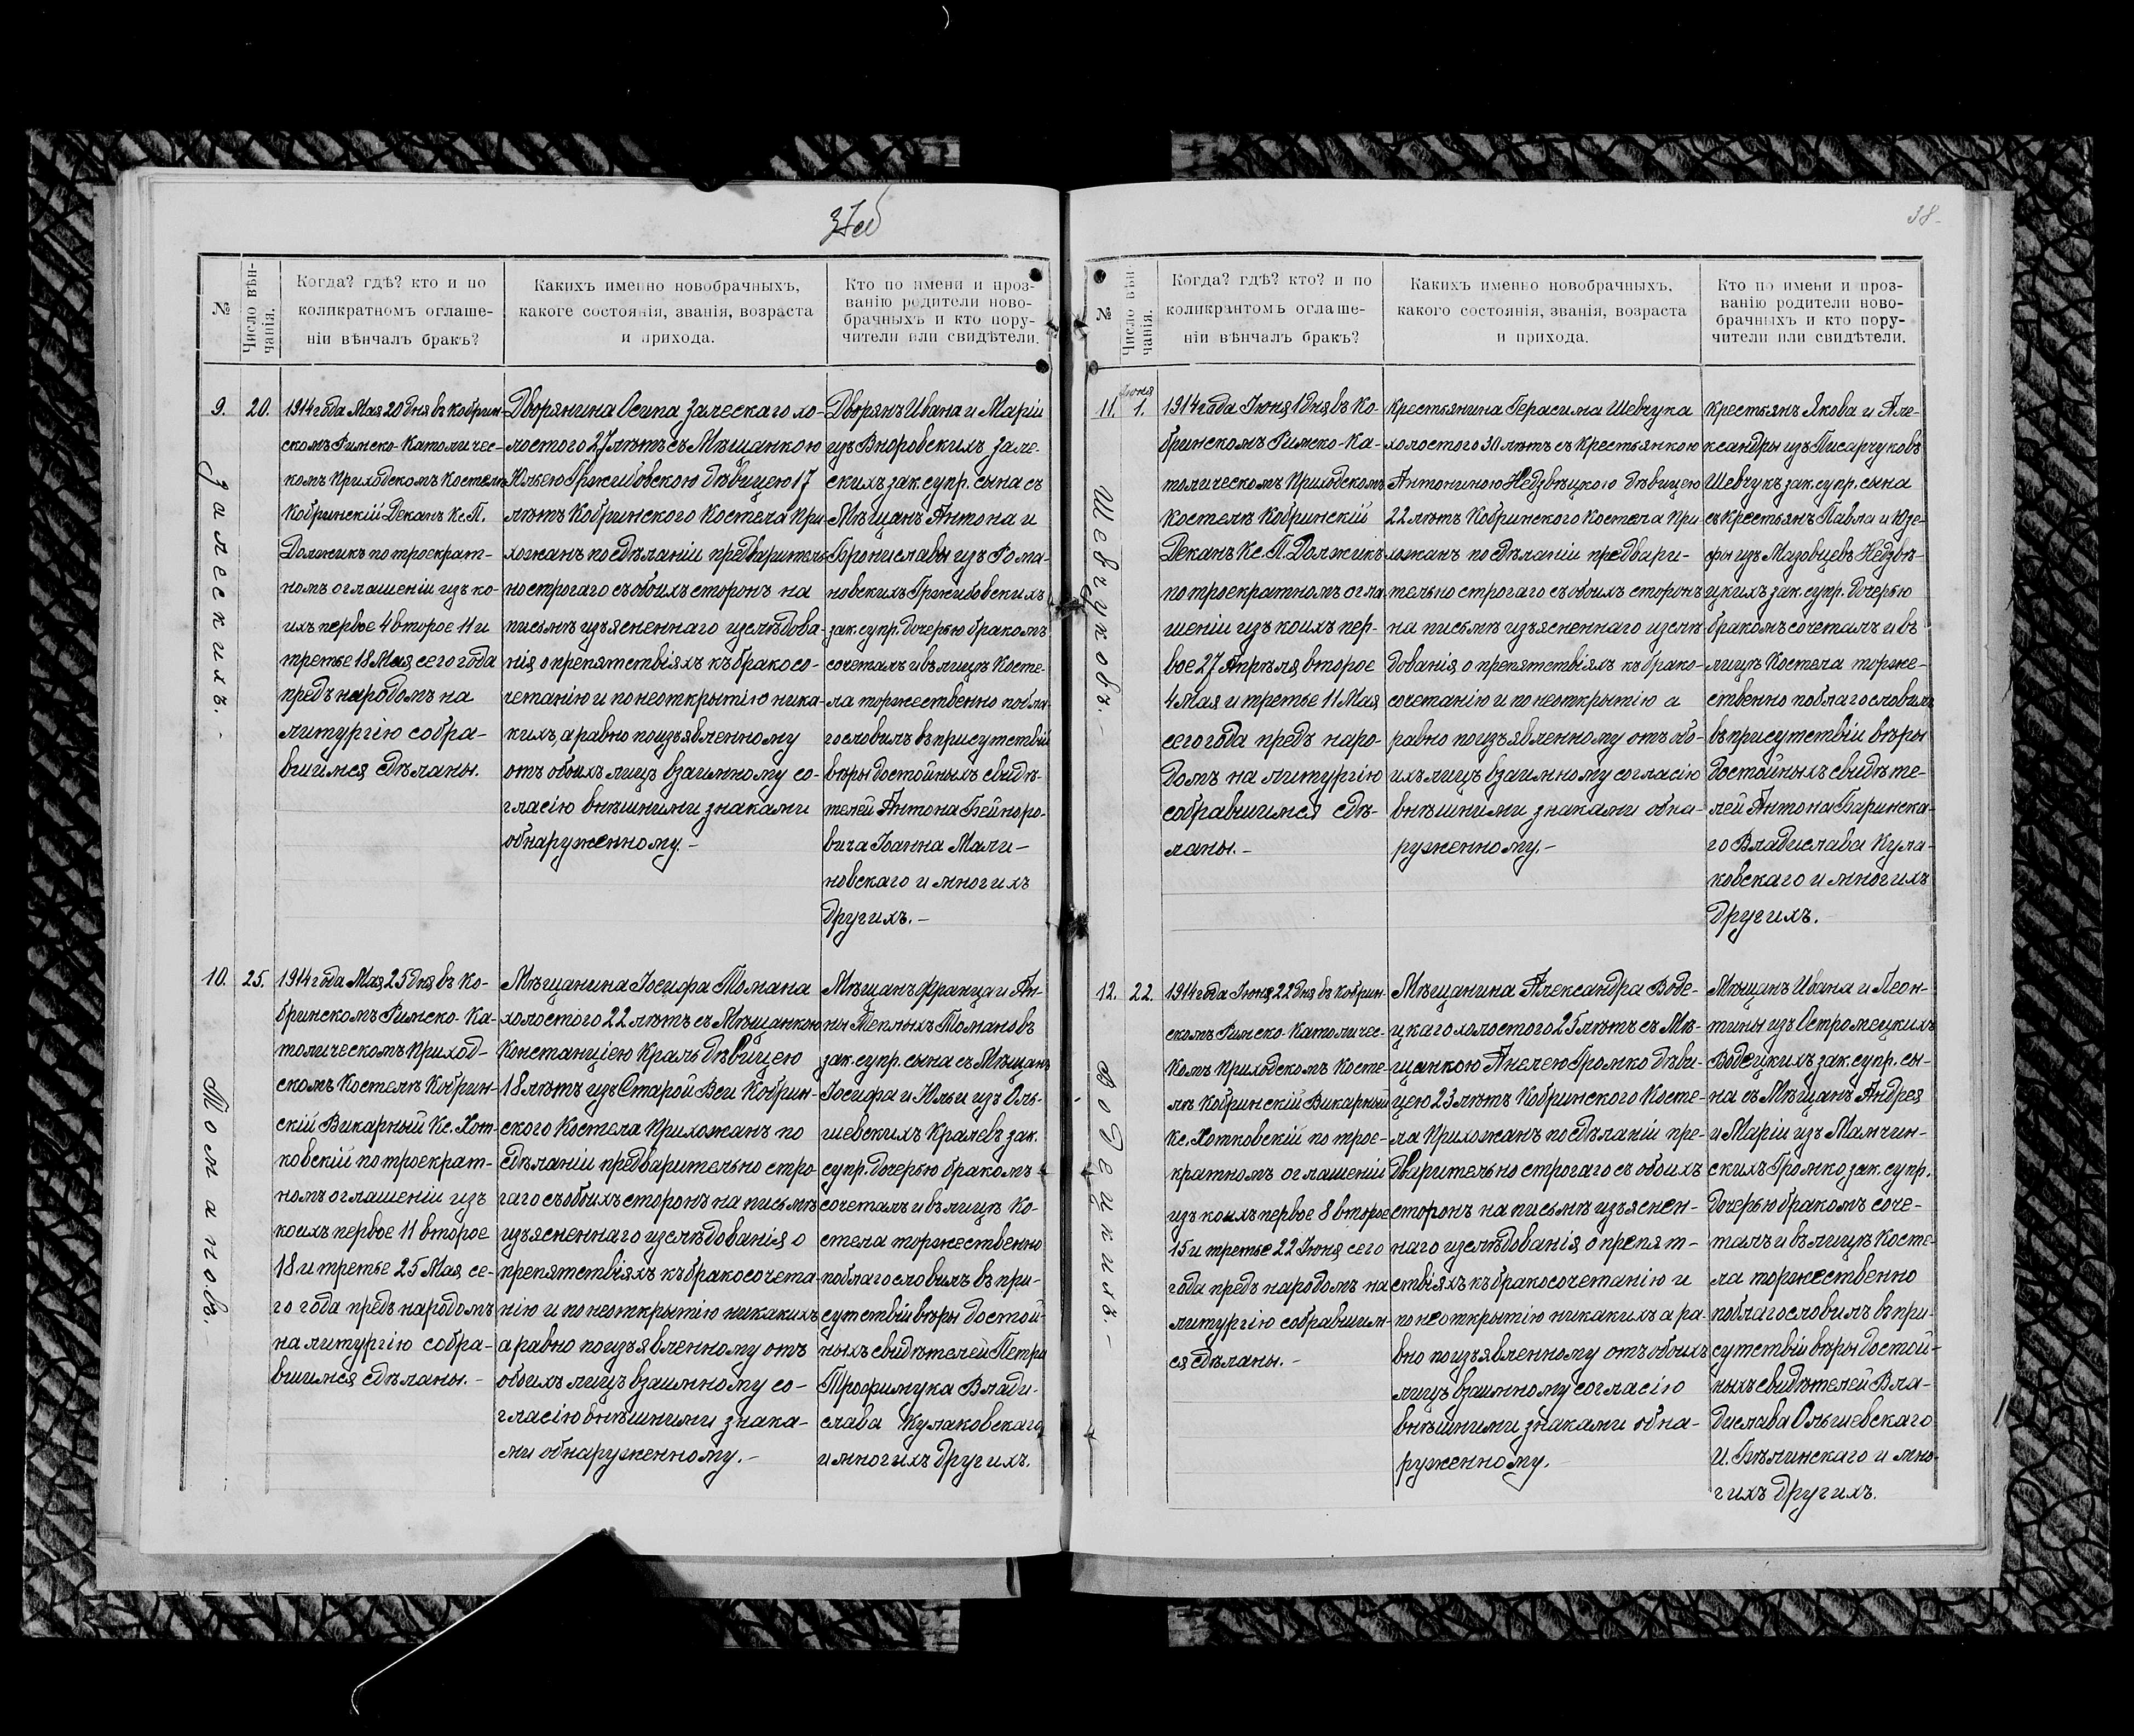 38
№
Число вѣн-
чанія.
Когда? гдѣ? кто и по
коликратномъ оглаше-
ніи вѣнчалъ бракъ?
Какихъ именно новобрачныхъ,
какоге состоянія, званія, возраста
и прихода.
Кто по имени и проз-
ванію родители ново-
брачныхъ и кто пору-
чители или свидѣтели.
9.
20.
Залескихъ.-
1914 года Мая 20 дня въ Кобрин-
скомъ Римско-Католичес-
комъ Приходскомъ Костелѣ
Кобринскій Деканъ Кс. П.
Должикъ по троекрат-
номъ оглашеніи изъ ко-
ихъ первое 4 второе 11 и
третье 18 Мая сего года
предъ народомъ на
литургію собра-
вшимся сдѣланы.
Дворянина Осипа Залескаго хо-
лостого 27 лѣтъ съ Мѣщанкою
Юльею Гржибовскою дѣвицею 17
лѣтъ Кобринского Костела При-
хожанъ по сдѣланіи предваритель-
но строгаго съ обоихъ сторонъ на
письмѣ изъясненнаго изслѣдова-
нія о препятствіяхъ къ бракосо-
четанію и по неоткрытію ника-
кихъ, а равно по изъявленному
отъ обоихъ лицъ взаимному со-
гласію внѣшними знаками
обнаруженному.-
Дворянъ Ивана и Маріи
изъ Вноровскихъ Зале-
скихъ зак. супр. сына съ
Мѣщанъ Антона и
Брониславы изъ Рома-
новскихъ Гржибовскихъ
зак. супр. дочерью бракомъ
сочеталъ и въ лицѣ Косте-
ла торжественно побла-
гословилъ въ присутствіи
вѣры достойныхъ свидѣ-
телей Антона Бейноро-
вича Іоанна Мали-
новскаго и многихъ
другихъ.-
10.
25.
Томановъ.-
1914 года Мая 25 дня въ Ко-
бринскомъ Римско-Ка-
толическомъ Приход-
скомъ Костелѣ Кобрин-
скій Викарный Кс. Хот-
ковскій по троекрат-
номъ оглашеніи изъ
коихъ первое 11 второе
18 и третье 25 Мая се-
го года предъ народомъ
на литургію собра-
вшимся сдѣланы.-
Мѣщанина Іосифа Томана
холостого 22 лѣтъ съ Мѣщанкою
Констанціею Краль дѣвицею
18 лѣтъ изъ Старой Вси Кобрин-
ского Костела Прихожанъ по
сдѣланіи предварительно стро-
гаго съ обоихъ сторонъ на письмѣ
изъясненнаго изслѣдованія о
препятствіяхъ къ бракосочета-
нію и по неоткрытію никакихъ
а равно по изъявленному отъ
обоихъ лицъ взаимному со-
гласію внѣшними знака-
ми обнаруженному.-
Мѣщанъ Франца и Ан-
ны Теплыхъ Томановъ
зак. супр. сына съ Мѣщанъ
Іосифа и Юльи изъ Оль-
шевскихъ Кралевъ зак.
супр. дочерью бракомъ
сочеталъ и въ лицѣ Ко-
стела торжественно
поблагословилъ въ при-
сутствіи вѣры достой-
ныхъ свидѣтелей Петра
Трофимука Влади-
слава Кулаковскаго
и многихъ другихъ.
№
Число вѣн-
чанія.
Когда? гдѣ? кто? и по
коликрантомъ оглаше-
ніи вѣнчалъ бракъ?
Какихъ именно новобрачныхъ,
какого состоянія, званія, возраста
и прихода.
Кто по имени и проз-
ванію родители ново-
брачныхъ и кто пору-
чители или свидѣтели.
11.
Іюня
1.
Шевчуковъ.-
1914 года Іюня 1 дня въ Ко-
бринскомъ Римско-Ка-
толическомъ Приходскомъ
Костелѣ Кобринскій
Деканъ Кс. П. Должикъ
по троекратномъ огла-
шеніи изъ коихъ пер-
вое 27 Апрѣля второе
4 Мая и третье 11 Мая
сего года предъ наро-
домъ на литургію
собравшимся сдѣ-
ланы.-
Крестьянина Герасима Шевчука
холостого 30 лѣтъ съ Крестьянкою
Антониною Недзвѣцкою дѣвицею
22 лѣтъ Кобринского Костела При
хожанъ по сдѣланіи предвари-
тельно строгаго съ обоихъ сторонъ
на письмѣ изъясненнаго изслѣ-
дованія о препятствіяхъ къ брако-
сочетанію и по неоткрытію а
равно по изъявленному отъ обо-
ихъ лицъ взаимному согласію
внѣшними знаками обна-
руженному.-
Крестьянъ Якова и Але-
ксандры изъ Писарчуковъ
Шевчукъ зак. супр. сына
съ Крестьянъ Павла и Юзе-
фы изъ Мазовцевъ Недзвѣ-
цкихъ зак. супр. дочерью
бракомъ сочеталъ и въ
лицѣ Костела торже-
ственно поблагословилъ
въ присутствіи вѣры
достойныхъ свидѣте-
лей Антона Баринска-
го Владислава Кула-
ковскаго и многихъ
другихъ.
12.
22.
Водецкихъ.-
1914 года Іюня 22 дня въ Кобрин-
скомъ Римско-Католичес-
комъ Приходскомъ Косте-
лѣ Кобринскій Викарный
Кс. Хотковскій по трое-
кратномъ оглашеніи
изъ коихъ первое 8 второе
15 и третье 22 Іюня сего
года предъ народомъ на
литургію собравшим-
ся сдѣланы.-
Мѣщанина Александра Воде-
цкаго холостого 25 лѣтъ съ Мѣ-
щанкою Анелею Громко дѣви-
цею 23 лѣтъ Кобринского Косте-
ла Прихожанъ по сдѣланіи пре-
дварительно строгаго съ обоихъ
сторонъ на письмѣ изъяснен-
наго изслѣдованія о препят-
ствіяхъ къ бракосочетанію и
по неоткрытію никакихъ а ра-
вно по изъявленному отъ обоихъ
лицъ взаимному согласію
внѣшними знаками обна-
руженному.
Мѣщанъ Ивана и Леон-
тины изъ Остромецкихъ
Водецкихъ зак. супр. сы-
на съ Мѣщанъ Андрея
и Маріи изъ Мамчин-
скихъ Громко зак. супр.
дочерью бракомъ соче-
талъ и въ лицѣ Косте-
ла торжественно
поблагословилъ въ при-
сутствіи вѣры достой-
ныхъ свидѣтелей Вла-
дислава Ольшевскаго
И. Бѣлинскаго и мно-
гихъ другихъ.